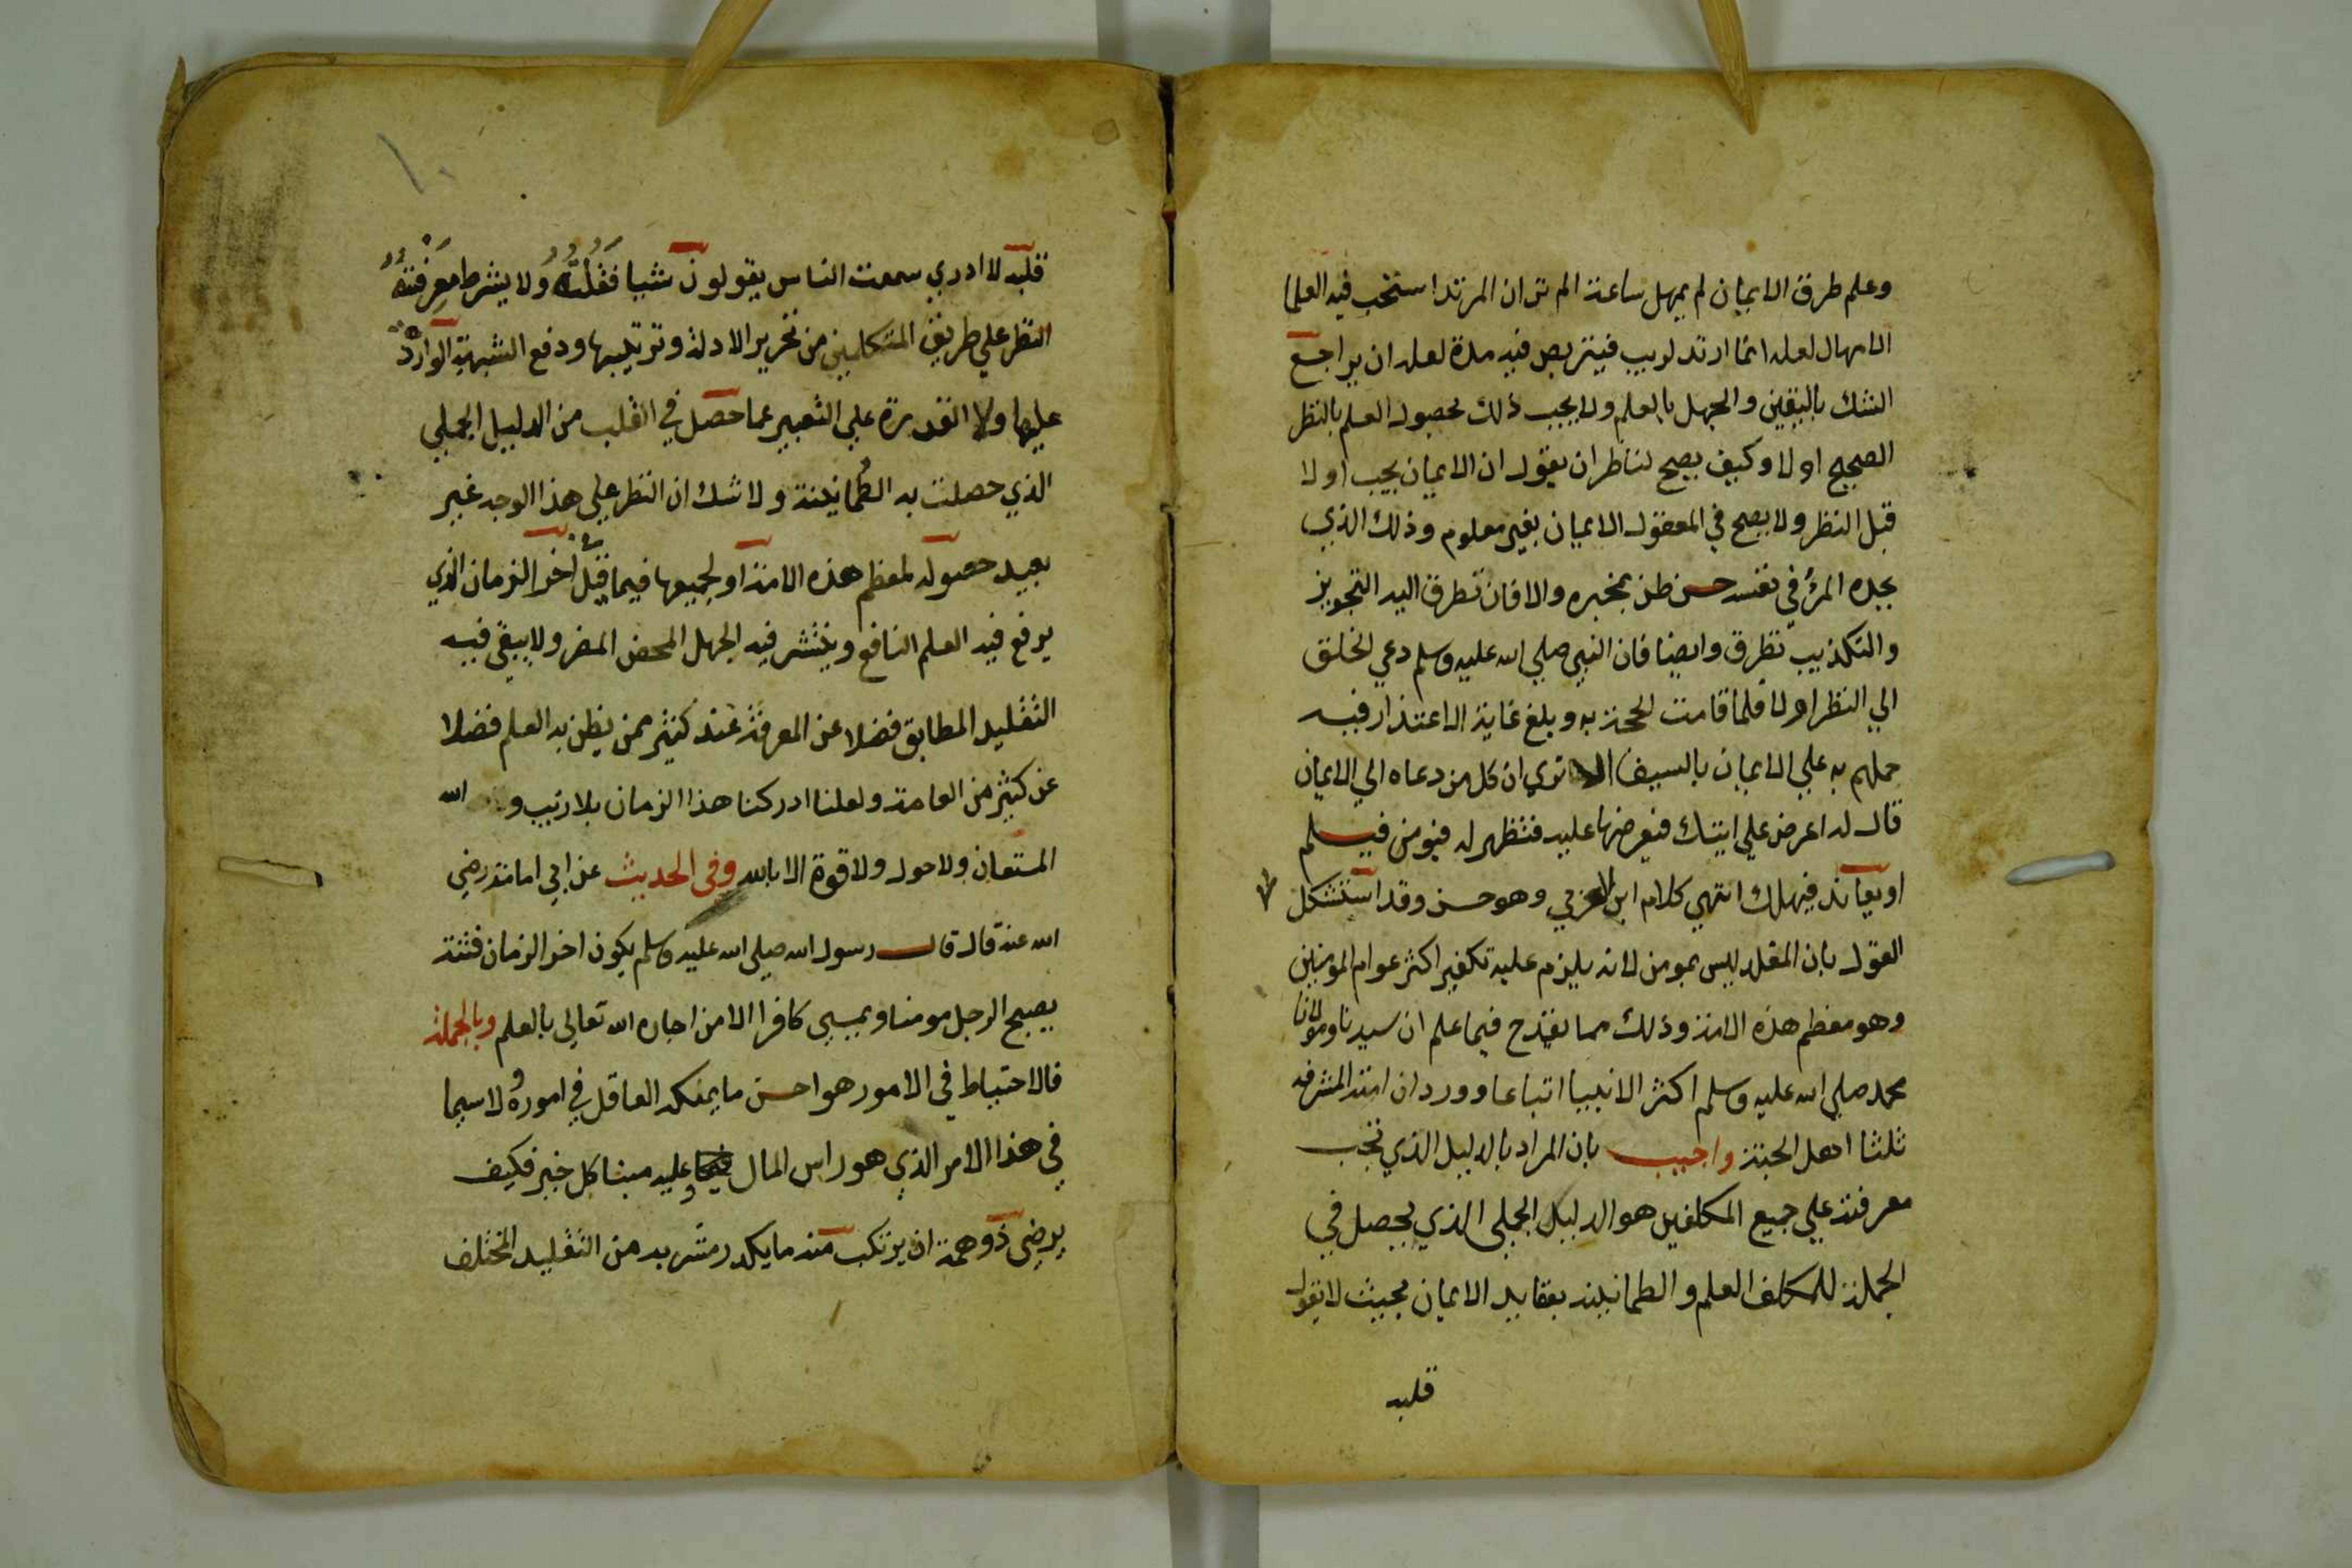 وعلم طرق الايمان لم يمهل ساعة الم تر ان المرتد استحب فيه العلما
الامهال لعله انما ارتد لريب فيتربص فيه مدة لعله ان يراجع
الشك باليقين والجهل بالعلم ولا يجب ذلك لحصول العلم بالنظر
الصحيح اولا وكيف يصح لناظر ان يقول ان الايمان يجب اولا
قبل النظر ولا يصح في المعقول الايمان بغير معلوم وذلك الذي
يجده المرء في نفسه حسن ظن بمخبره والا فان تطرق اليه التجويز
والتكذيب تطرق وايضا فان النبي صلي الله عليه وسلم دعي الخلق
الي النظر اولا فلما قامت الحجة به وبلغ غاية الاعتذار فيه
حملهم به علي الايمان بالسيف الا تري ان كل من دعاه الي الايمان
قال له اعرض علي ايتك فيعرضها عليه فتظهر له فيومن فيسلم
او يعاند فيهلك انتهي كلام ابن العربي وهو حسن وقد استشكل
القول بان المقلد ليس بمومن لانه يلزم عليه تكفير اكثر عوام المومنين
وهو معظم هذه الامة وذلك مما يقدح فيما علم ان سيدنا ومولانا
محمد صلي الله عليه وسلم اكثر الانبيا اتباعا وورد ان امته المشرفه
ثلثا اهل الجنة واجيب بان المراد بالدليل الذي تجب
معرفته علي جميع المكلفين هو الدليل الجملي الذي يحصل في
الجملة للمكلف العلم والطمانينة بعقايد الايمان بحيث لا يقول
قلبه
١٠
قلبه لا ادري سمعت الناس يقولون شيا فقلته ولا يشرط معرفته
النظر علي طريق المتكلمين من تحرير الادلة وترتيبها ودفع الشبهة الواردة
عليها ولا القدرة علي التعبير عما حصل في القلب من الدليل الجملي
الذي حصلت به الطمانينة ولا شك ان النظر علي هذا الوجه غير
بعيد حصوله لمعظم هذه الامة او لجميعها فيما قبل اخر الزمان الذي
يرفع فيه العلم النافع وينتشر فيه الجهل المحض المضر ولا يبقي فيه
التقليد المطابق فضلا عن المعرفة عند كثير ممن يظن به العلم فضلا
عن كثير من العامة ولعلنا ادركنا هذا الزمان بلا ريب و الله
المستعان ولا حول ولا قوة الا بالله وفي الحديث عن ابي امامة رضي
الله عنه قال قال رسول الله صلي الله عليه وسلم يكون اخر الزمان فتنة
يصبح الرجل مومنا ويمسي كافرا الا من اجاره الله تعالي بالعلم وبالجملة
فالاحتياط في الامور هو احسن ما يسلكه العاقل في اموره ولا سيما
في هذا الامر الذي هو راس المال وعليه مبنا كل خير فكيف
يرضي ذو همة ان يرتكب منه ما يكدر مشربه من التقليد المختلف